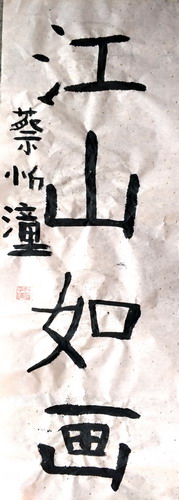 江山如画
蔡怡潼